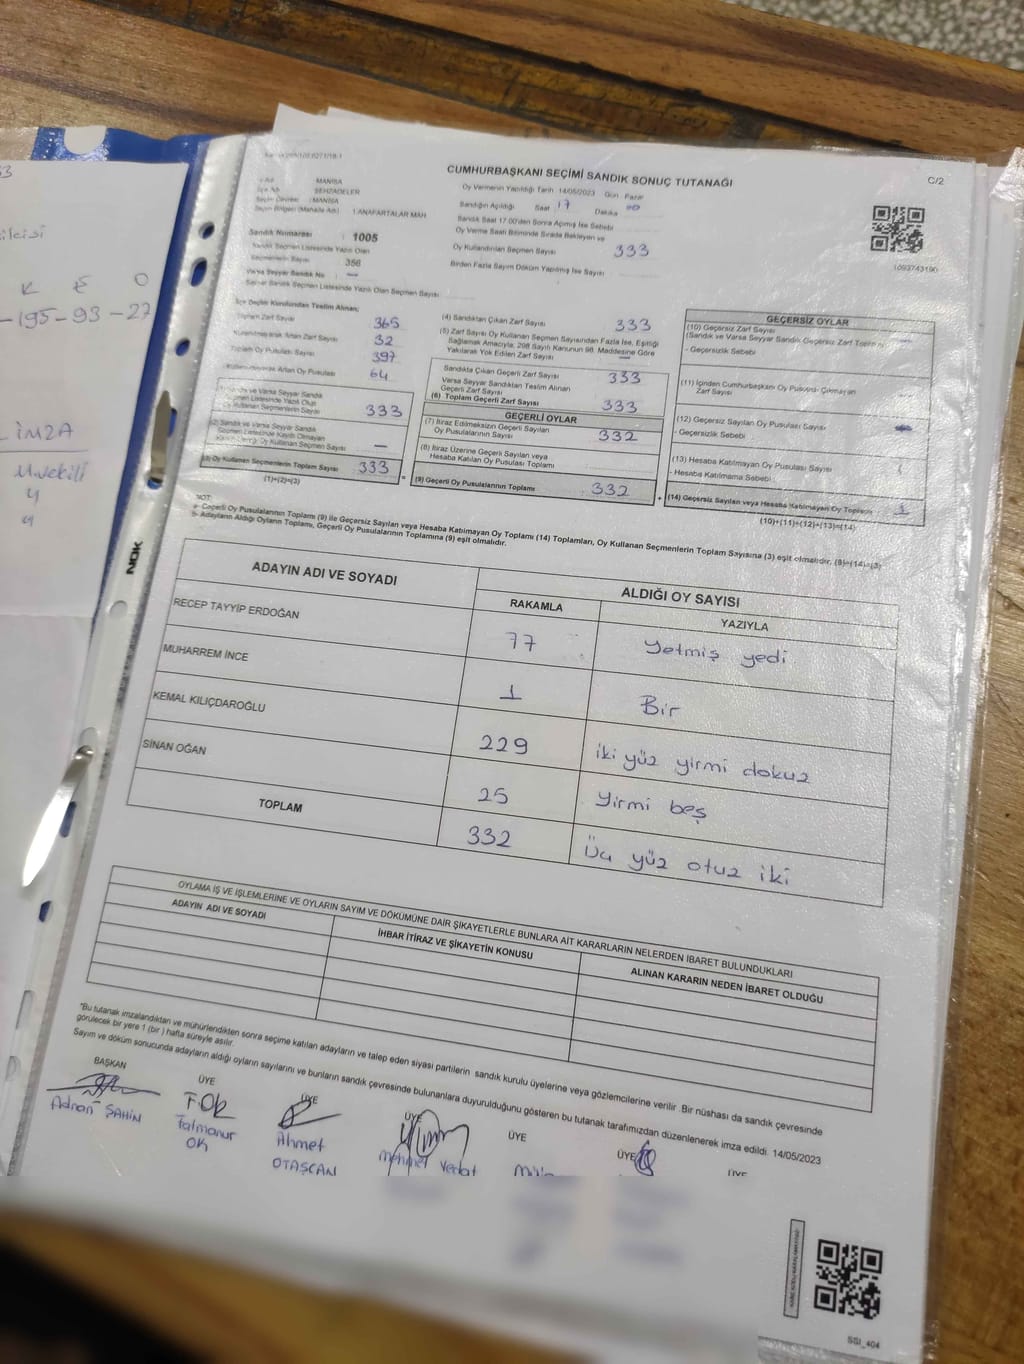 CUMHURBAŞKANI SEÇİMİ SANDIK SONUÇ TUTANAĞI
C/2
MANİSA
ŞEHZADELER
MANİSA
1.ANAFARTALAR MAH
Oy Vermenin Yapıldığı Tarih 14/05/2023 Gün Pazar
Sandığın Açıldığı Saat 17 Dakika 00
Sandık Saat 17.00'den Sonra Açılmış İse Sebebi
Oy Verme Saati Bitiminde Sırada Bekleyen ve
Oy Kullandırılan Seçmen Sayısı 333
Birden Fazla Sayım Döküm Yapılmış İse Sayısı
Sandık Numarası 1005
Sandık Seçmen Listesinde Yazılı Olan
Seçmenlerin Sayısı 356
Varsa Seyyar Sandık No —
Seyyar Sandık Seçmen Listesinde Yazılı Olan Seçmen Sayısı
1093743190
İlçe Seçim Kurulundan Teslim Alınan;
Toplam Zarf Sayısı 365
Kullanılmayarak Artan Zarf Sayısı 32
Toplam Oy Pusulası Sayısı 397
Kullanılmayarak Artan Oy Pusulası 64
(1) Sandık ve Varsa Seyyar Sandık
Seçmen Listesinde Yazılı Olup
Oy Kullanan Seçmenlerin Sayısı 333
(2) Sandık ve Varsa Seyyar Sandık
Seçmen Listesinde Kayıtlı Olmayan
Oy Kullanan Seçmen Sayısı —
(3) Oy Kullanan Seçmenlerin Toplam Sayısı 333
(1)+(2)=(3)
(4) Sandıktan Çıkan Zarf Sayısı 333
(5) Zarf Sayısı Oy Kullanan Seçmen Sayısından Fazla İse, Eşitliği
Sağlamak Amacıyla; 298 Sayılı Kanunun 98. Maddesine Göre
Yakılarak Yok Edilen Zarf Sayısı —
Sandıkta Çıkan Geçerli Zarf Sayısı 333
Varsa Seyyar Sandıktan Teslim Alınan
Geçerli Zarf Sayısı
(6) Toplam Geçerli Zarf Sayısı 333
GEÇERLİ OYLAR
(7) İtiraz Edilmeksizin Geçerli Sayılan
Oy Pusulalarının Sayısı 332
(8) İtiraz Üzerine Geçerli Sayılan veya
Hesaba Katılan Oy Pusulası Toplamı
(9) Geçerli Oy Pusulalarının Toplamı 332
GEÇERSİZ OYLAR
(10) Geçersiz Zarf Sayısı
(Sandık ve Varsa Seyyar Sandık Geçersiz Zarf Toplamı)
- Geçersizlik Sebebi
(11) İçinden Cumhurbaşkanı Oy Pusulası Çıkmayan
Zarf Sayısı
(12) Geçersiz Sayılan Oy Pusulası Sayısı
- Geçersizlik Sebebi
(13) Hesaba Katılmayan Oy Pusulası Sayısı 1
- Hesaba Katılmama Sebebi
(14) Geçersiz Sayılan veya Hesaba Katılmayan Oy Toplamı 1
(10)+(11)+(12)+(13)=(14)
NOT:
a- Geçerli Oy Pusulalarının Toplamı (9) ile Geçersiz Sayılan veya Hesaba Katılmayan Oy Toplamı (14) Toplamları, Oy Kullanan Seçmenlerin Toplam Sayısına (3) eşit olmalıdır. (9)+(14)=(3)
b- Adayların Aldığı Oyların Toplamı, Geçerli Oy Pusulalarının Toplamına (9) eşit olmalıdır.
ADAYIN ADI VE SOYADI
ALDIĞI OY SAYISI
RAKAMLA YAZIYLA
RECEP TAYYİP ERDOĞAN 77 Yetmiş yedi
MUHARREM İNCE 1 Bir
KEMAL KILIÇDAROĞLU 229 iki yüz yirmi dokuz
SİNAN OĞAN 25 Yirmi beş
TOPLAM 332 Üç yüz otuz iki
OYLAMA İŞ VE İŞLEMLERİNE VE OYLARIN SAYIM VE DÖKÜMÜNE DAİR ŞİKAYETLERLE BUNLARA AİT KARARLARIN NELERDEN İBARET BULUNDUKLARI
ADAYIN ADI VE SOYADI
İHBAR İTİRAZ VE ŞİKAYETİN KONUSU
ALINAN KARARIN NEDEN İBARET OLDUĞU
*Bu tutanak imzalandıktan ve mühürlendikten sonra seçime katılan adayların ve talep eden siyasi partilerin sandık kurulu üyelerine veya gözlemcilerine verilir .Bir nüshası da sandık çevresinde
görülecek bir yere 1 (bir ) hafta süreyle asılır.
Sayım ve döküm sonucunda adayların aldığı oyların sayılarını ve bunların sandık çevresinde bulunanlara duyurulduğunu gösteren bu tutanak tarafımızdan düzenlenerek imza edildi. 14/05/2023
BAŞKAN ÜYE ÜYE ÜYE ÜYE ÜYE ÜYE
Adnan ŞAHİN
Fatmanur
OK
Ahmet
OTAŞCAN
Mehmet Vedat
SSI_404
NOK
K E O
-195-93-27
İMZA
M.Vekili